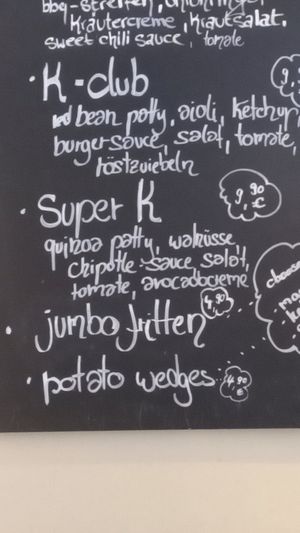 bbq-streifen,
Kräutercreme, Krautsalat,
sweet chili sauce, tomate
· K-club
bean patty, aioli, ketchup,
burgersauce, salat, tomate,
röstzwiebeln
· Super K 9,90 €
quinoa patty, walnüsse
chipotle-sauce, salat,
tomate, avocadocreme
· jumbo fritten 4,90
· potato wedges 4,90 €